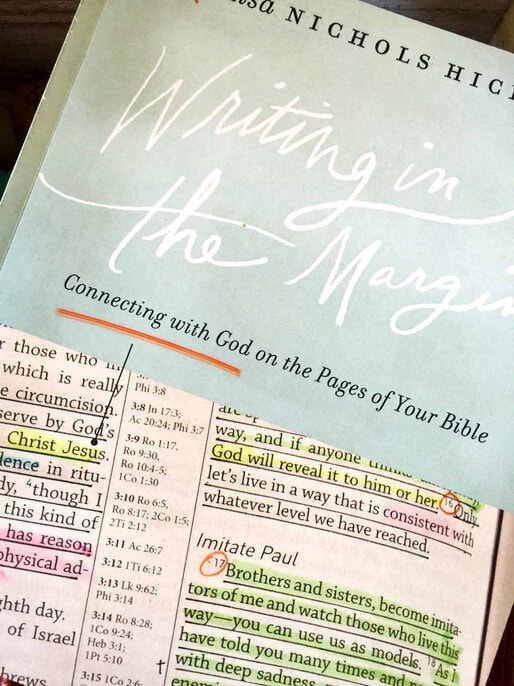 NICHOLS
Writing in
the
Connecting with God on the Pages of Your Bible
those who
which is really
circumcision.
God's
Christ Jesus.
in ritu-
4though I
this kind of
has reason
physical ad-
day.
of Israel
Phil 3:8
3:8 Jn 17:3;
Ac 20:24; Phi 3:7
3:9 Ro 1:17,
Ro 9:30,
Ro 10:4-5;
1Co 1:30
3:10 Ro 6:5,
Ro 8:17; 2Co 1:5;
2Ti 2:12
3:11 Ac 26:7
3:12 1Ti 6:12
3:13 Lk 9:62;
Phi 3:14
3:14 Ro 8:28;
1Co 9:24;
Heb 3:1;
1Pt 5:10
3:15 1Co 2:6
way, and if anyone
God will reveal it to him or her. 16 Only
let's live in a way that is consistent with
whatever level we have reached.
Imitate Paul
17 Brothers and sisters, become imita-
tors of me and watch those who live this
way—you can use us as models. 18 As I
have told you many times and
with deep sadness,